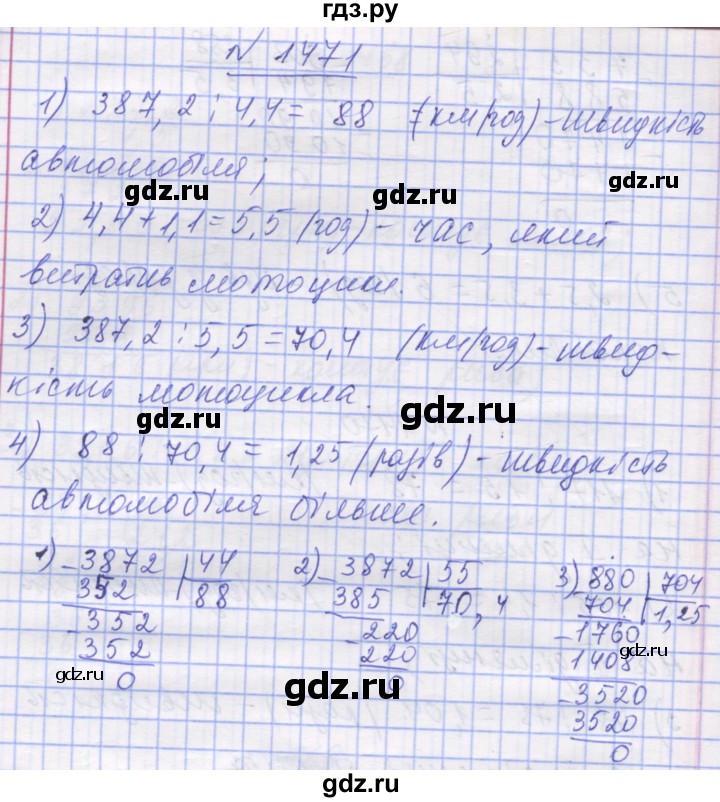 гдз.ру
N 1471
1) 387,2 : 4,4 = 88 (км/год) - швидкість
автомобіля;
gdz.ru gdz.ru
2) 4,4 + 1,1 = 5,5 (год) - час, який
gdz.ru
витратив мотоцикл.
3) 387,2 : 5,5 = 70,4 (км/год) - швид-
кість мотоцикла.
gdz.ru gdz.ru
4) 88 : 70,4 = 1,25 (разів) - швидкість
автомобіля більше.
1) 3872 | 44 2) 3872 | 55 3) 880 | 704
352 | 88 385 | 70,4 704 | 1,25
352 220 1760
352 220 1408
0 0 3520
gdz.ru gdz.ru gdz.ru
3520
0
gdz.ru